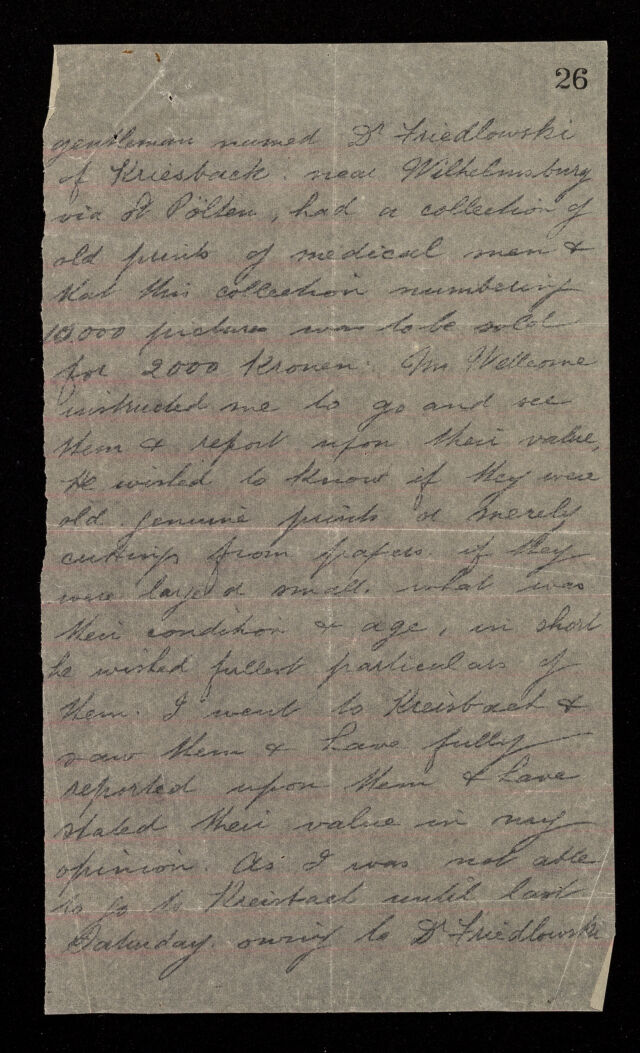 26
gentleman named Dr Friedlowski
of Kriesback. near Wilhelmsburg
via St Pölten, had a collection of
old prints of medical men &
that this collection numbering
10,000 pictures was to be sold
for 2000 Kronen. Mr Wellcome
instructed me to go and see
them & report upon their value,
He wished to know if they were
old genuine prints or merely
cuttings from papers. if they
were large or small. what was
their condition & age, in short
he wished fullest particulars of
them. I went to Kreisbach &
saw them & have fully
reported upon them & have
stated their value in my
opinion. As I was not able
to go to Kreisbach until last
Saturday. owing to Dr Friedlowski